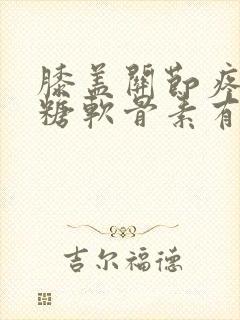 膝盖關節疼
糖軟骨素有
吉尔福德